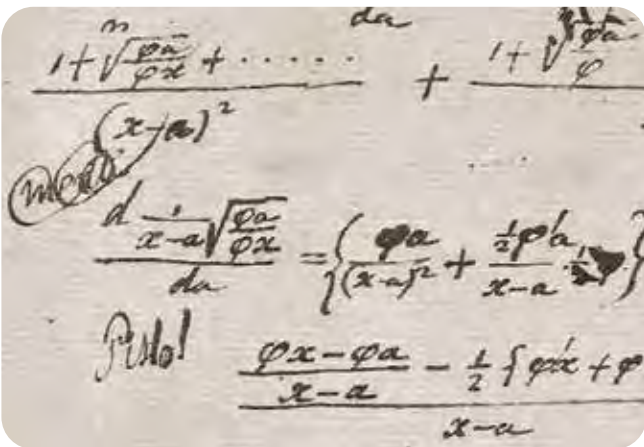 da
1 + ⁿ√(φa/φx) + ..... + 1 + ⁿ√(φa/φ
(x-a)²
....
d 1/(x-a) √(φa/φx) / da = { φa/(x-a)² + ½φ'a/(x-a)
Pisto!
(φx-φa)/(x-a) - ½ { φ'x + φ
x-a